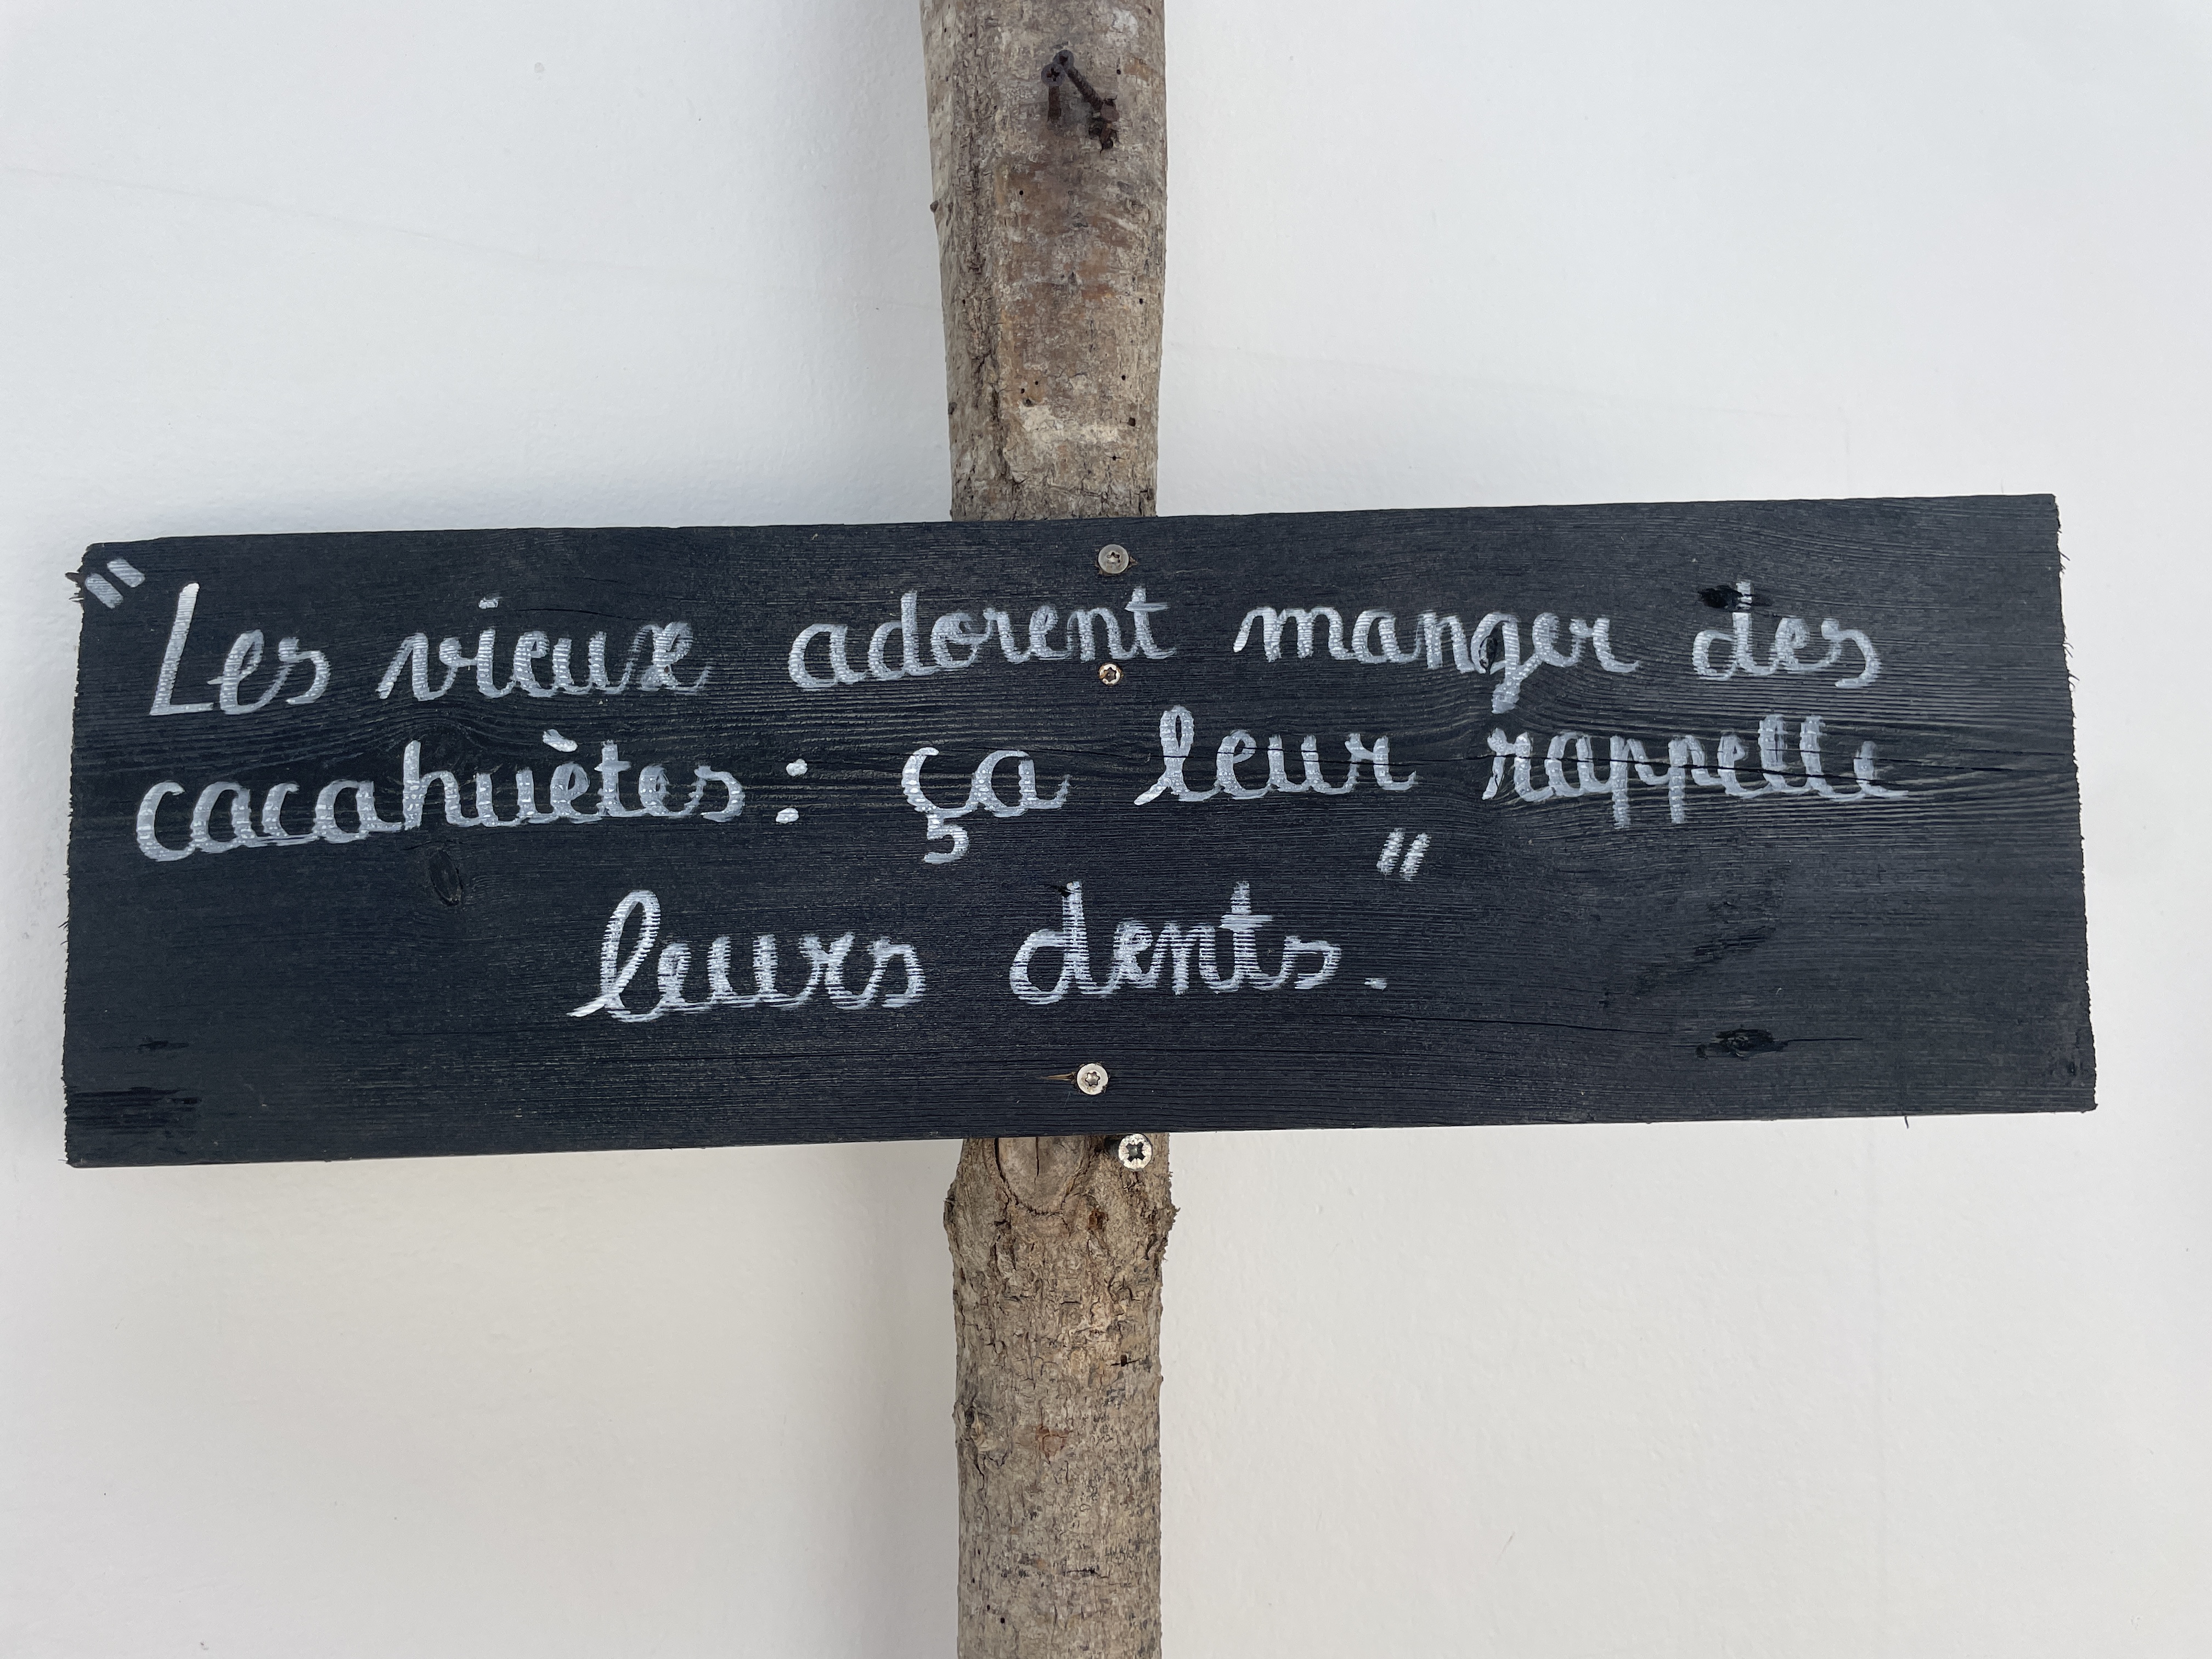 "Les vieux adorent manger des
cacahuètes : ça leur rappelle
leurs dents."